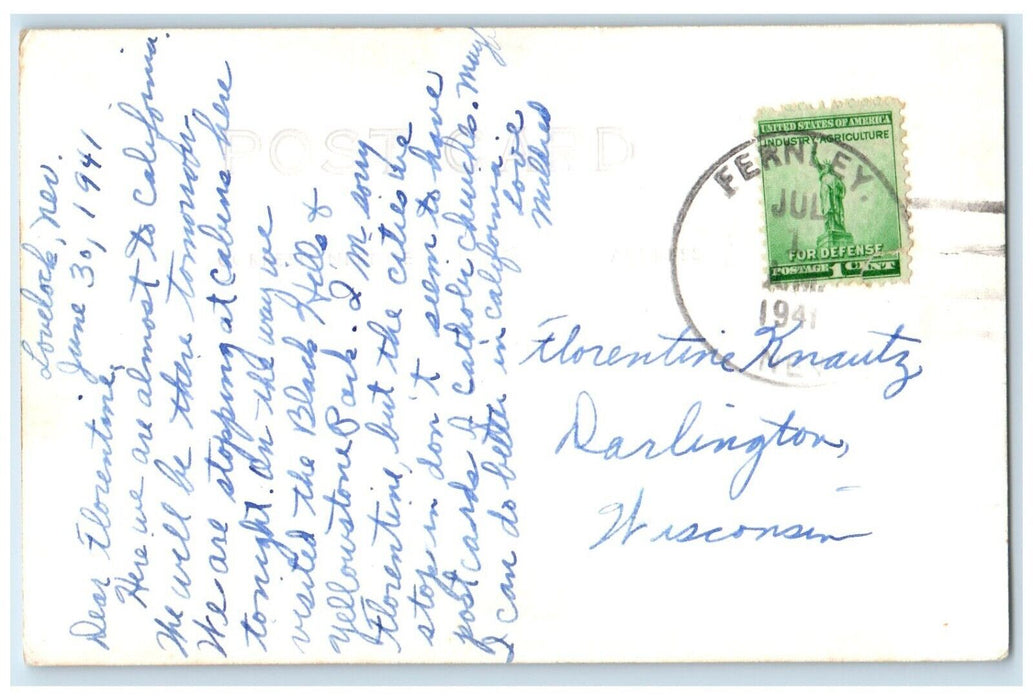 Lovelock, Nev.
June 30, 1941
Dear Florentine,
Here we are almost to California.
We will be there tomorrow.
We are stopping at cabins here
tonight. On the way we
visited the Black Hills &
Yellowstone Park. I'm sorry
Florentine, but the cities we
stop in don't seem to have
post cards of Catholic churches. May
I can do better in California.
Love
Mildred
POST CARD
FERNLEY
JUL
1
1941
NEV
UNITED STATES OF AMERICA
INDUSTRY AGRICULTURE
FOR DEFENSE
POSTAGE 1 CENT
Florentine Knautz
Darlington,
Wisconsin